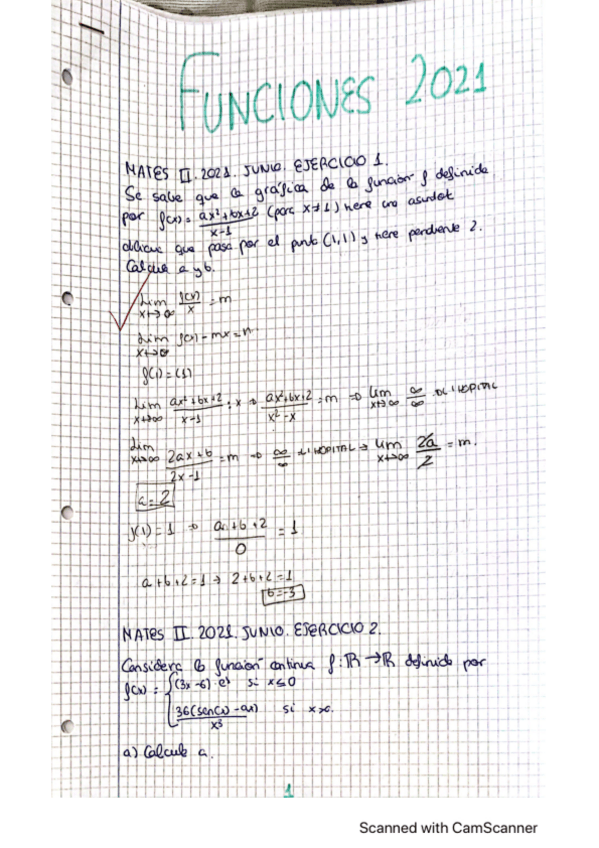 FUNCIONES 2021
MATES II. 2021. JUNIO. EJERCICIO 1.
Se sabe que la gráfica de la función f definida
por f(x) = ax²+bx+2 / x-1 (para x≠1) tiene una asíntota
oblicua que pasa por el punto (1,1) y tiene pendiente 2.
Calcula a y b.
Lim x→∞ f(x)/x = m
Lim x→∞ f(x) - mx = n
f(1) = (1)
Lim x→∞ ax²+bx+2 / x-1 : x ⇒ ax²+bx+2 / x²-x = m ⇒ Lim x→∞ ∞/∞ L'HOPITAL
Lim x→∞ 2ax+b / 2x-1 = m ⇒ ∞/∞ L'HOPITAL → Lim x→∞ 2a/2 = m.
a=2
f(1) = 1 ⇒ a+b+2 / 0 = 1
a+b+2=1 → 2+b+2=1
b=-3
MATES II. 2021. JUNIO. EJERCICIO 2.
Considera la función continua f: ℝ → ℝ definida por
f(x) = { (3x-6)·eˣ si x≤0
36(sen(x) - ax) / x³ si x>0.
a) Calcula a.
1
Scanned with CamScanner